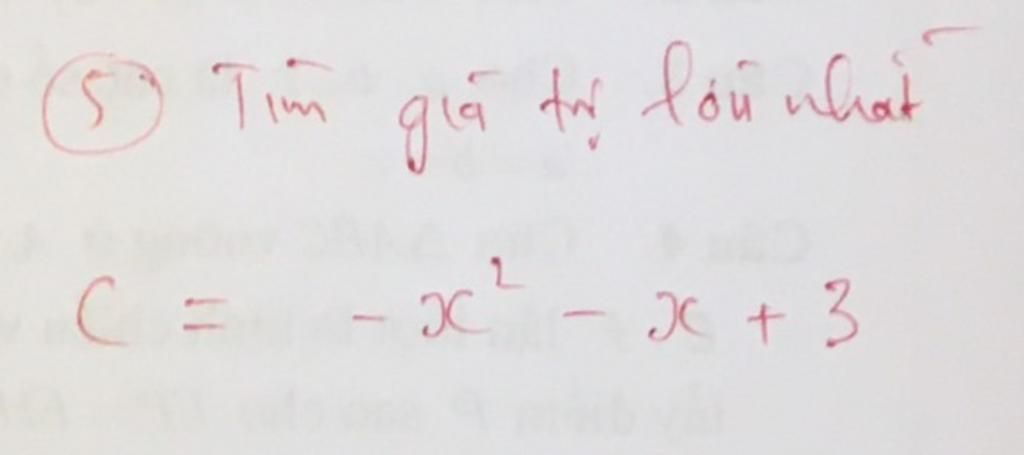 ⑤ Tìm giá trị lớn nhất
C = -x² - x + 3